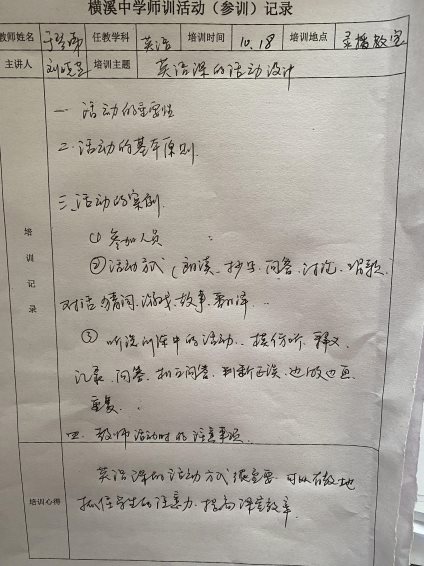 横溪中学师训活动（参训）记录
教师姓名 任教学科 英语 培训时间 10.18 培训地点 录播教室
主讲人 培训主题 英语课的活动设计
培训记录
一、活动的重要性
二、活动的基本原则
三、活动的案例
① 参加人员
② 活动方式（朗读、抄写、问答、讨论、唱歌
对话、猜词、游戏、故事、翻译..
③ 听说训练中的活动、模仿听、释义、
记录、问答、相互问答、判断正误、边做边画
重复、
四、教师活动时的注意事项
培训心得
英语课的活动方式很重要，可以有效地
抓住学生的注意力，提高课堂效率.